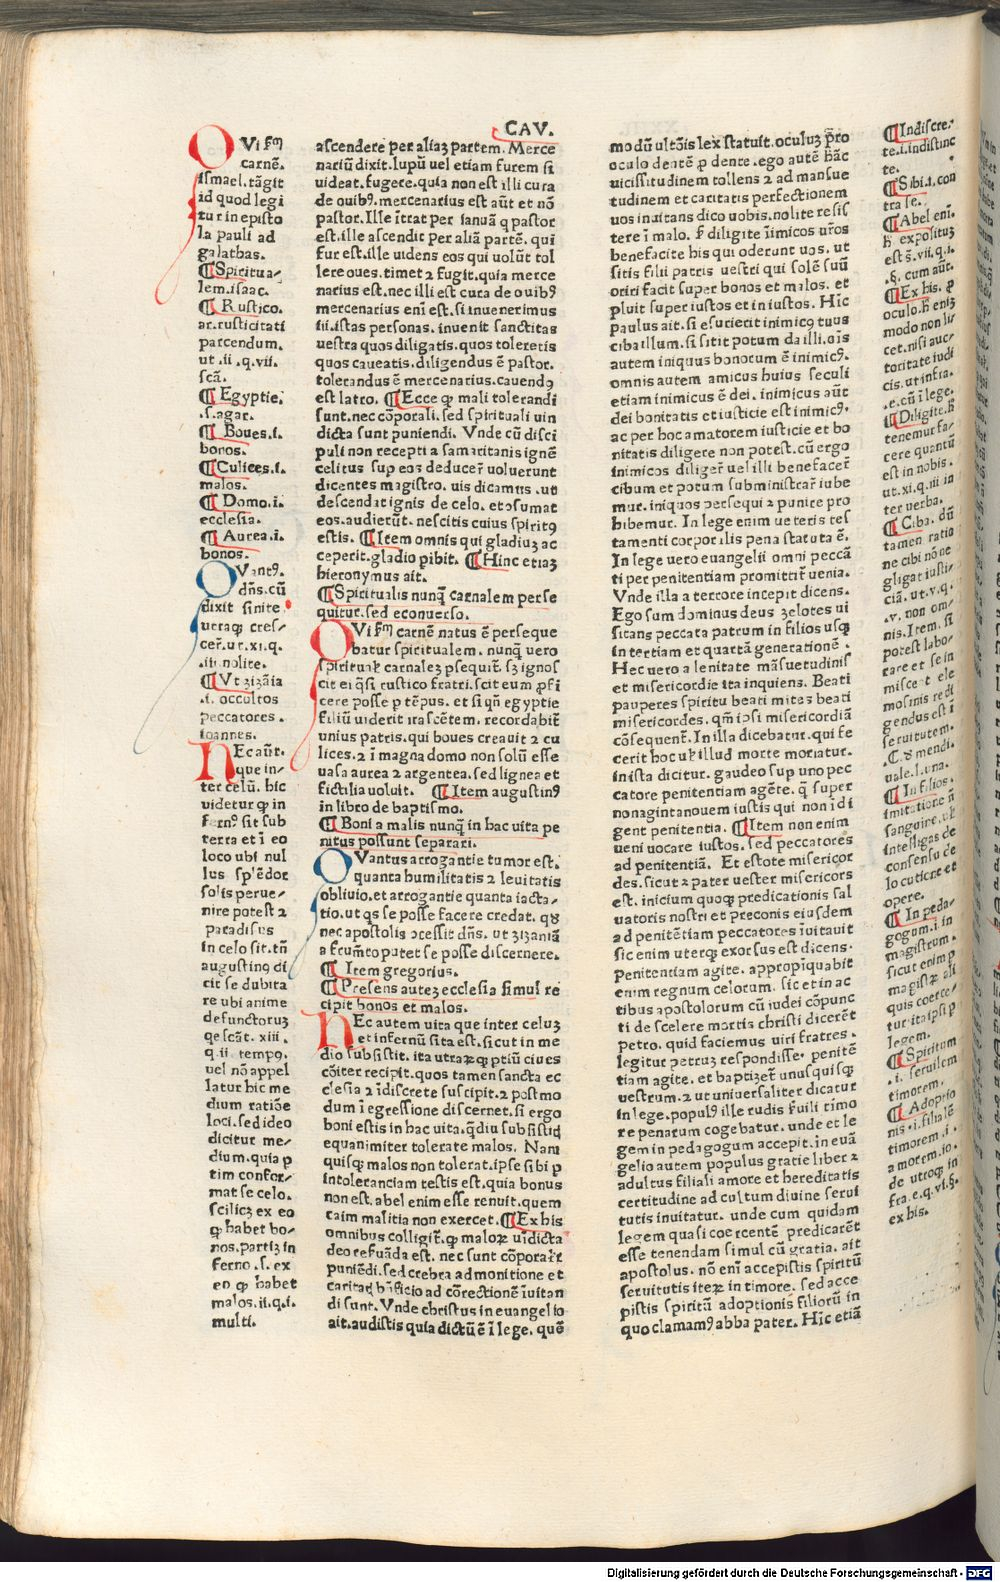 CAV.
QVi ẜm
carnē.
ismael. tāgit
id quod legi
tur in episto
la pauli ad
galathas.
¶Spiritua⸗
lem. isaac.
¶ Rustico.
ar. rusticitati
parcendum.
ut .ii .q. vii.
scā.
¶ Egyptie.
.s. agar.
¶ Boues. i.
bonos.
¶Culices. i.
malos.
¶ Domo. i.
ecclesia.
¶ Aurea. i.
bonos.
QVantꝰ.
dn̄s. cū
dixit sinite
utraqꝫ cres⸗
cer̄. ut. xi. q.
.iii. nolite.
¶ Vt zizāia
.i. occultos
peccatores .
ioannes.
NEc aūt.
que in⸗
ter celū. hic
videtur ꝙ in
fernꝰ sit sub
terra et i eo
loco ubi nul
lus splēdor
solis perue⸗
nire potest ⁊
paradisus
in celo sit. tn̄
augustinꝰ di
cit se dubita
re ubi anime
defunctoruꝫ
qescāt. xiii .
q. ii. tempꝰ.
uel nō appel
latur hic me
dium ratiōe
loci. sed ideo
dicitur me⸗
dium. quia p
tim confor⸗
mat se celo.
scilicꝫ ex eo
ꝙ habet bo⸗
nos. partiꝫ in
ferno .s. ex
eo ꝙ habet
malos. ii. q. i.
multi.
ascendere per aliaꝫ partem. Merce
nariū dixit. lupū uel etiam furem si
uideat. fugere. quia non est illi cura
de ouibꝰ. mercenarius est aūt et nō
pastor. Ille ītrat per ianuā q pastor
est. ille ascendit per aliā partē. qui
fur est. ille uidens eos qui uolūt tol
lere oues. timet ⁊ fugit. quia merce
narius est. nec illi est cura de ouibꝰ
mercenarius enī est. si inuenerimus
iii. istas personas. inuenit sanctitas
uestra quos diligatis. quos toleretis
quos caueatis. diligendus ē pastor.
tolerandus ē mercenarius. cauendꝰ
est latro. ¶Ecce ꝙ mali tolerandi
sunt. nec cōporali. sed spirituali uin
dicta sunt puniendi. Vnde cū disci
puli non recepti a samaritanis ignē
celitus sup eos deducer̄ uoluerunt
dicentes magistro. uis dicamus. ut
descendat ignis de celo. et osumat
eos. audierūt. nescitis cuius spiritꝰ
estis. ¶Item omnis qui gladiuꝫ ac
ceperit. gladio pibit. ¶Hinc etiaꝫ
hieronymus ait.
¶Spiritualis nunq̄ carnalem perse
quitur. sed econuerso.
QVi ẜm carnē natus ē perseque
batur spiritualem. nunq̄ uero
spiritual' carnaleꝫ ꝑsequit̄. sꝫ ignos
cit ei q̄si rustico fratri. scit eum ꝓfi
cere posse ꝑ tēpus. et si qn̄ egyptie
filiū uiderit irascētem. recordabit̄
unius patris. qui boues creauit ⁊ cu
lices. ⁊ ī magna domo non solū esse
uasa aurea ⁊ argentea. sed lignea et
fictilia uoluit. ¶Item augustinꝰ
in libro de baptismo.
¶ Boni a malis nunq̄ in hac uita pe
nitus possunt separari.
QVantus arrogantie tumor est.
quanta humilitatis ⁊ leuitatis
obliuio. et arrogantie quanta iacta⸗
tio. ut qs se posse facere credat. qꝺ
nec apostolis ocessit dn̄s. ut zizaniā
a frum̄to putet se posse discernere.
¶ Item gregorius.
¶Presens auteꝫ ecclesia simul re
cipit bonos et malos.
NEc autem uita que inter celuꝫ
et infernū sita est. sicut in me
dio subsistit. ita utrarꝫqꝫ ptiū ciues
cōiter recipit. quos tamen sancta ec
clesia ⁊ īdiscrete suscipit. ⁊ postmo
dum ī egressione discernet. si ergo
boni estis in hac uita. q̄diu subsistiꝫ
equanimiter tolerate malos. Nam
quisqꝫ malos non tolerat. ipse sibi p
intoleranciam testis est. quia bonus
non est. abel enim esse renuit. quem
caim malitia non exercet. ¶Ex his
omnibus colligit̄. ꝙ maloꝝ uīdicta
deo refuāda est. nec sunt cōporal'r
puniēdi. sed crebra admonitione et
caritaꝫ bn̄ficio ad corectionē īuitan
di sunt. Vnde christus in euangelio
ait. audistis quia dictū ē ī lege. quē
modū ultōis lex statuit. oculuꝫ p̄ro
oculo dentē ꝓ dente. ego autē hāc
uicissitudinem tollens ⁊ ad mansue
tudinem et caritatis perfectionem
uos inuitans dico uobis. nolite resis
tere ī malo. ẜ diligite īimicos uṙos
benefacite his qui oderunt uos. ut
sitis filii patris uestri qui solē suū
oriri facit super bonos et malos. et
pluit super iustos et iniustos. Hic
paulus ait. si esurierit inimicꝰ tuus
ciba illum. si sitit potum da illi. oīs
autem iniquus bonorum ē inimicꝰ.
omnis autem amicus huius seculi
etiam inimicus ē dei. inimicus aūt
dei bonitatis et iusticie est inimicꝰ.
ac per hoc amatorem iusticie et bo
nitatis diligere non potest. cū ergo
inimicos diliger̄ uel illi benefacer̄
cibum et potum subministrar̄ iube
mur. iniquos ꝑsequi ⁊ punire pro
hibemur. In lege enim ueteris tes
tamenti corporalis pena statuta ē.
In lege uero euangelii omni peccā
ti per penitentiam promittit̄ uenia.
Vnde illa a terrore incepit dicens.
Ego sum dominus deus zelotes ui
sitans peccata patrum in filios usqꝫ
in tertiam et quartā generationē .
Hec uero a lenitate māsuetudinis
et misericordie ita inquiens. Beati
pauperes spiritu beati mites beati
misericordes. qm̄ ipsi misericordiā
cōsequent̄. In illa dicebatur. qui fe
cerit hoc ul' illud morte moriatur.
in ista dicitur. gaudeo sup uno pec
catore penitentiam agēte. q̄ super
nonagintanouem iustis qui non īdi
gent penitentia. ¶Item non enim
ueni uocare iustos. sed peccatores
ad penitentiā. Et estote misericor
des. sicut ⁊ pater uester misericors
est. inicium quoqꝫ predicationis sal
uatoris nostri et preconis eiusdem
ad penitētiam peccatores īuitauit
sic enim uterqꝫ exorsus est dicens.
Penitentiam agite. appropīquabit
enim regnum celorum. sic et in ac
tibus apostolorum cū iudei cōpunc
ti de scelere mortis christi dicerēt
petro. quid faciemus uiri fratres.
legitur petruꝫ respondisse. penitē
tiam agite. et baptizet̄ unusquisqꝫ
uestrum. ⁊ ut uniuersaliter dicatur
in lege. populꝰ ille rudis ẜuili timo
re penarum cogebatur. unde et le
gem in pedagogum accepit. in euā
gelio autem populus gratie liber ⁊
adultus filiali amore et hereditatis
certitudine ad cultum diuine serui
tutis inuitatur. unde cum quidam
legem quasi coercentē predicarēt
esse tenendam simul cū gratia. ait
apostolus. nō enī accepistis spiritū
seruitutis iteꝝ in timore. sed acce
pistis spiritū adoptionis filiorū in
quo clamamꝰ abba pater. Hic etiā
¶Indiscre⸗
te. i. indistinc
te.
¶Sibi. i. con
tra se.
¶Abel eni.
ħ expositꝫ
est s. vii. q. i.
.§. cum aūt.
¶Ex his. ꝓ
oculo. ħ eniꝫ
modo non li⸗
cet. nisi auc⸗
toritate iudi
cis. ut infra.
.e. cū ī lege.
¶Diligite. ħ
tenemur fa⸗
cere quantū
est in nobis.
ut. xi. q. iii in
ter verba.
¶ Ciba. dū
tamen ratio
ne cibi nō ne
gligat iusti⸗
ciā. ut. v. q.
.v. non om⸗
nis. Item. si
potest labo⸗
rare et se in
miscet ele
mosinis redi
gendus est ī
seruitutem.
.C. ꝺ mendi.
uale. l. una.
¶ In filios.
imitatione n̄
sanguine. ut
intelligas de
consensu de
locutione et
opere.
¶ In peda⸗
gogum. i. in
magistrum.
sicut enim ꝑ
magist̄ꝝ ali
quis coerce⸗
tur ita ipsi ꝑ
legem.
¶Spiritum
.i. seruilem
timorem.
¶ Adoptio
nis. i. filialē
timorem .i.
amorem. io.
de utroqꝫ in
fra. e. q. vi. §.
ex his.
Digitalisierung gefördert durch die Deutsche Forschungsgemeinschaft - DFG